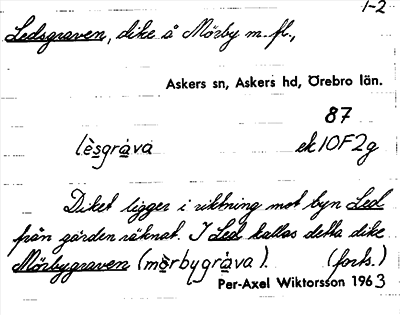 1-2
Ledsgraven, dike å Mörby m.fl.,
Askers sn, Askers hd, Örebro län.
87
lèsgrava ek 10F2g
Diket ligger i riktning mot byn Led
från gården räknat. I Led kallas detta dike
Mörbygraven (mörbygrava). (forts.)
Per-Axel Wiktorsson 1963